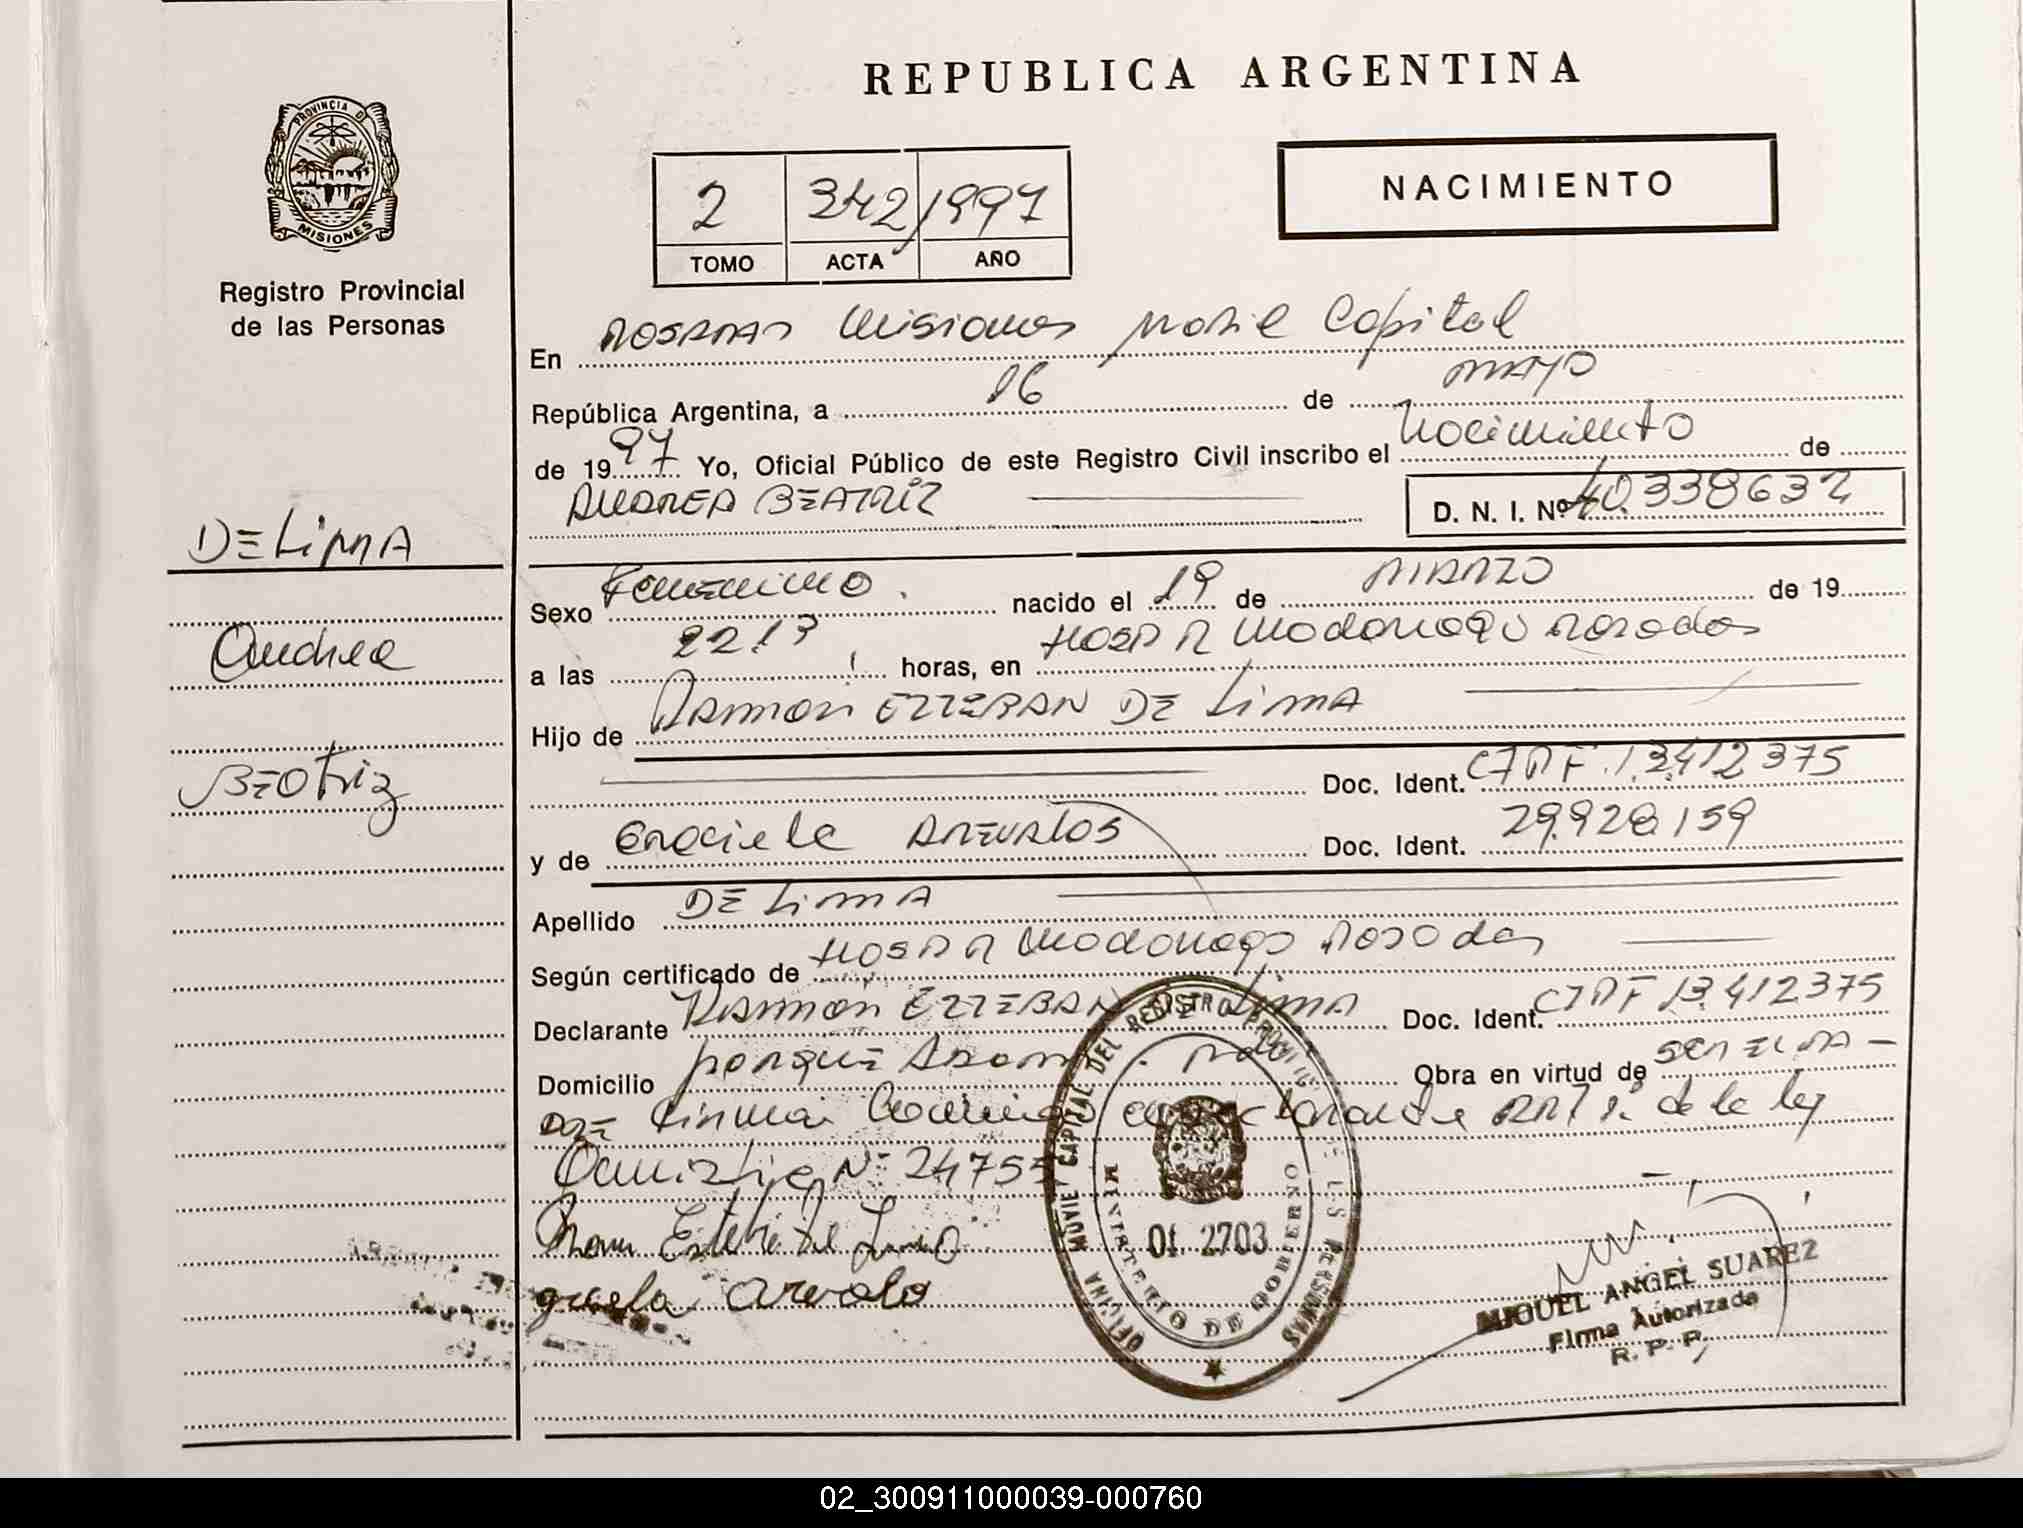 REPUBLICA ARGENTINA
PROVINCIA DE
MISIONES
Registro Provincial
de las Personas
NACIMIENTO
2 342/1997
TOMO ACTA AÑO
En POSADAS Misiones Movil Capital
República Argentina, a 16 de MAYO
de 1997 Yo, Oficial Público de este Registro Civil inscribo el Nacimiento de
ANDREA BEATRIZ D. N. I. Nº 40.338632
DE LiMA
Andrea
BEatriz
Sexo Femenino. nacido el 19 de MARZO de 19
a las 22.17 horas, en HOSP R Madariaga Posadas
Hijo de RAMON ESTEBAN DE LiMA
Doc. Ident. 13.412375
y de Graciela AREVALOS Doc. Ident. 29.928.159
Apellido DE LiMA
Según certificado de HOSP R Madariaga Posadas
Declarante RAMON ESTEBAN DE LiMA Doc. Ident. 13.412375
Domicilio PARQUE ADAM Obra en virtud de
de la ley
Amnistia Nº 24755
graciela arevalo
OFICINA MOVIL CAPITAL DEL REGISTRO PROVINCIAL DE LAS PERSONAS
MINISTERIO DE GOBIERNO
01 2703
MIGUEL ANGEL SUAREZ
Firma Autorizada
R. P. P.
02_300911000039-000760